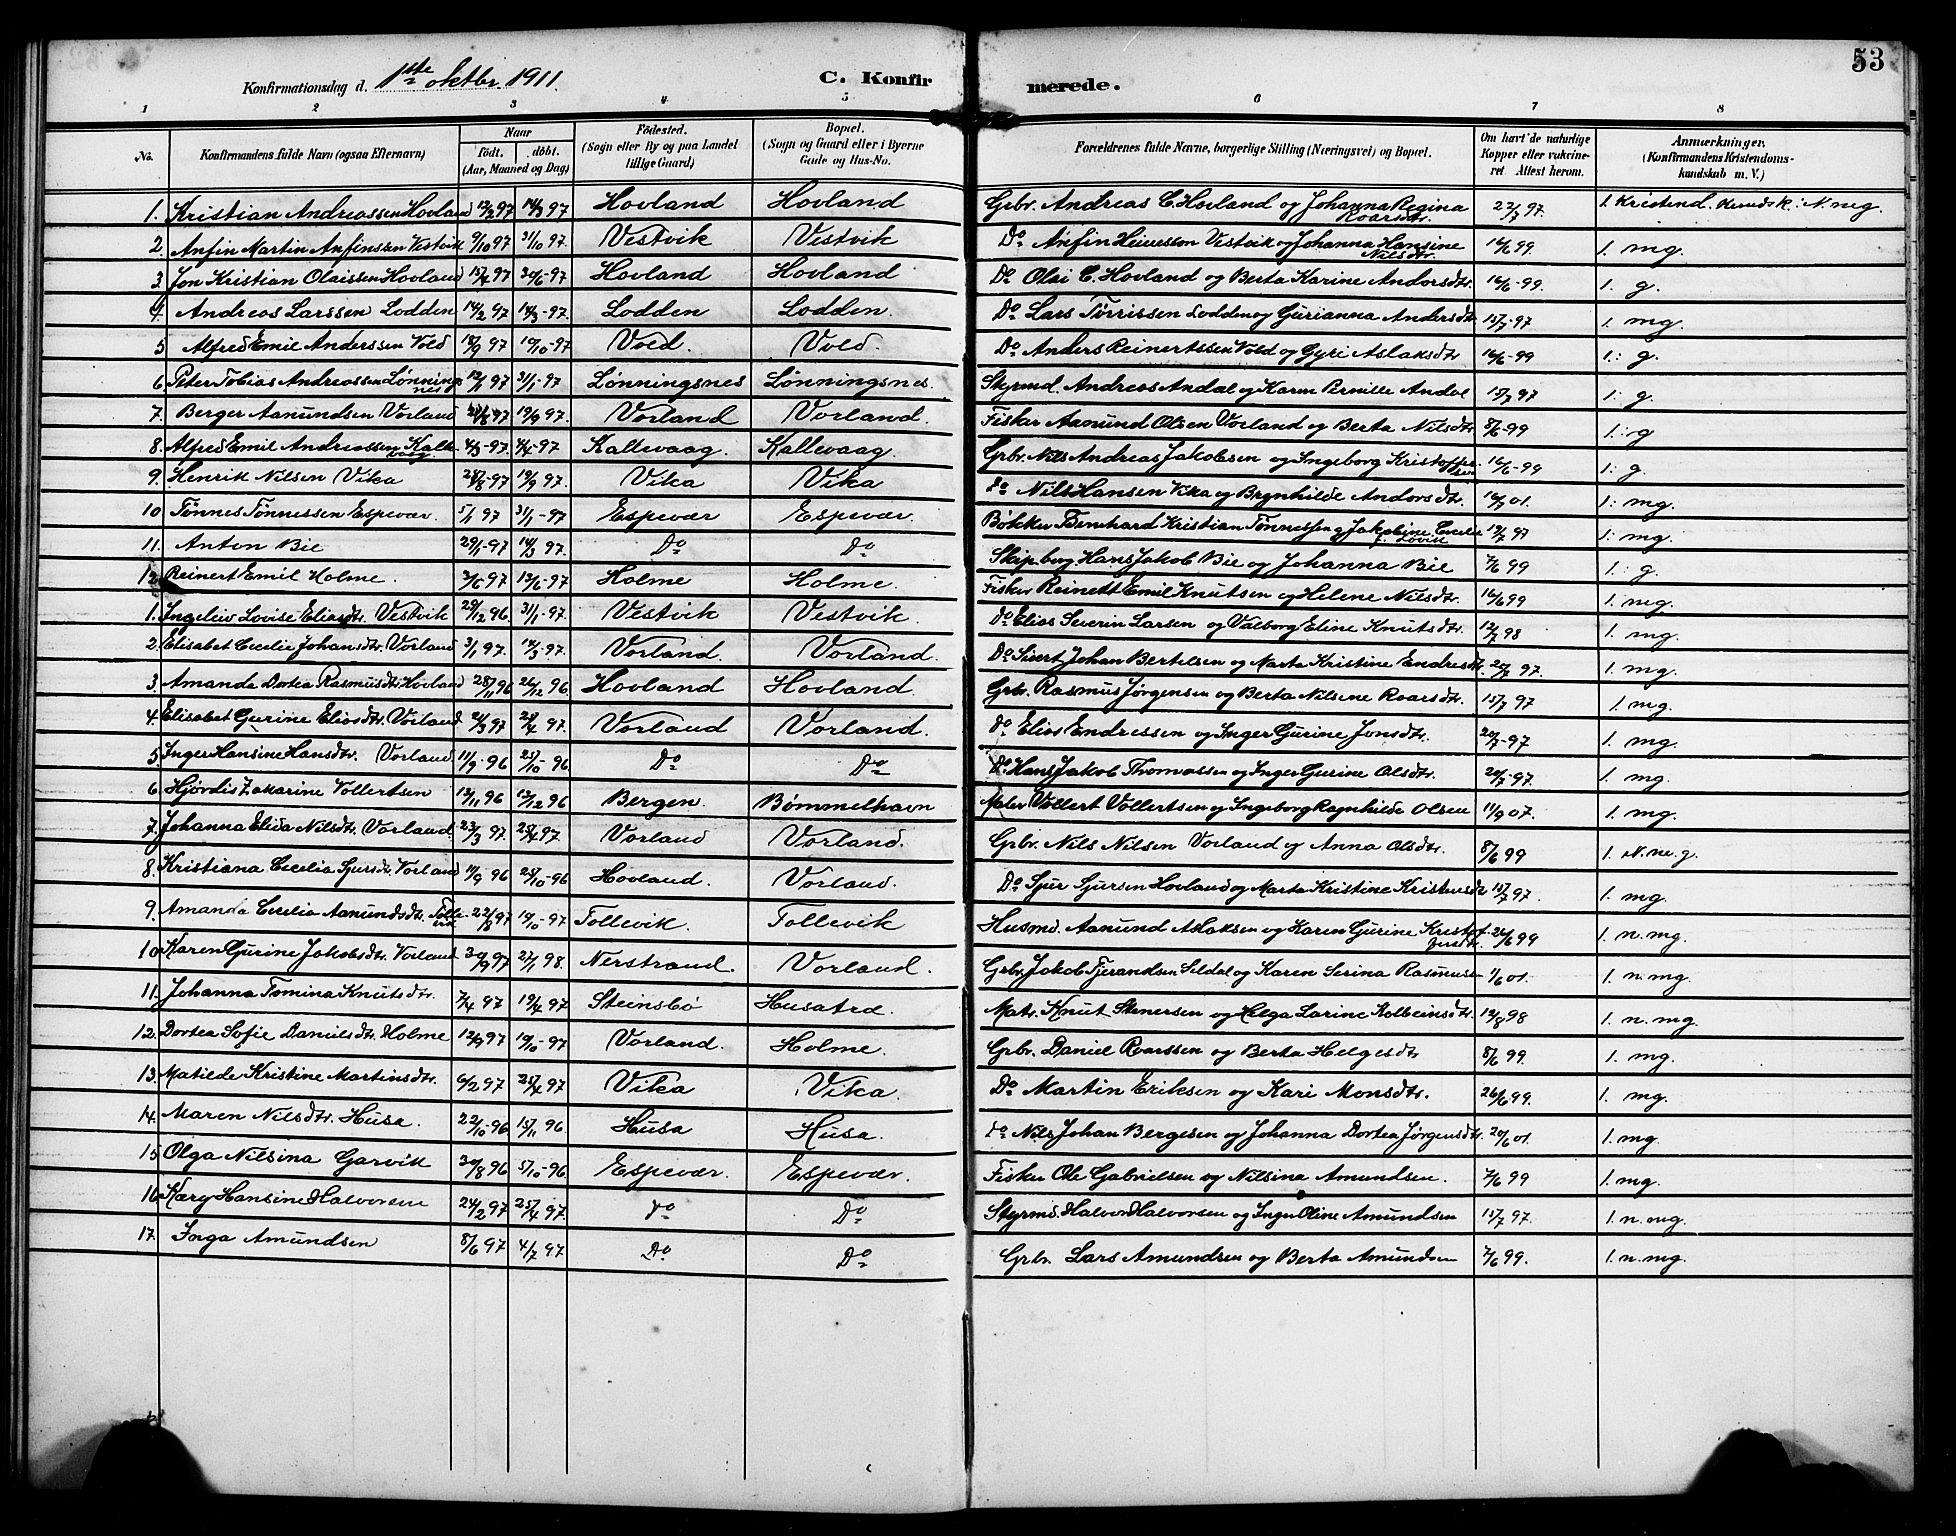 53
Konfirmationsdag d. 1ste oktbr. 1911.
C. Konfir merede.
1 2 3 4 5 6 7 8
No.
Konfirmandens fulde Navn (ogsaa Efternavn)
Naar
født. døbt.
(Aar, Maaned og Dag)
Födested.
(Sogn eller By og paa Landet
tillige Gaard)
Bopæl.
(Sogn og Gaard eller i Byerne
Gade og Hus-No.
Forældrenes fulde Navne, borgerlige Stilling (Næringsvei) og Bopæl.
Om havt de naturlige
Kopper eller vakcine-
ret Attest herom.
Anmærkninger.
(Konfirmandens Kristendoms-
kundskab m. V.)
1. Kristian Andreassen Hovland 12/2 97 14/3 97 Hovland Hovland Grbr. Andreas C. Hovland og Johanna Regina Roarsdtr. 22/7 97. 1. Kristend. Kundsk: N. neg.
2 Anfin Martin Anfinsen Vestvik 9/10 97 31/10 97. Vestvik Vestvik Do Anfin Vestvik og Johanna Hansine Nilsdtr 16/6 99 1. mg.
3 Jon Kristian Olaissen Hovland 15/4 97 20/6-97 Hovland Hovland Do Olai C. Hovland og Berta Karine Andorsdtr. 16/6-99. 1. g.
4. Andreas Larssen Lodden 14/2 97 14/3-97. Lodden Lodden. Do Lars Tørrissen Lodden og Gurianna Andersdtr 15/7-97 1. mg.
5 Alfred Emil Anderssen Vold 18/9 97 10/10-97 Vold. Vold. Do Anders Reinertssen Vold og Gyri Aslaksdtr 16/6-99 1: g.
6. Peter Tobias Andreassen Lønnings nes 12/1 97 31/1-97 Lønningsnes Lønningsnes. Styrmd. Andreas Andal og Karen Pernille Andal 15/7 97 1: g.
7. Berger Aamundsen Vorland 97 19/9 97. Vorland Vorland. Fisker Aamund Olsen Vorland og Berta Nilsdtr 8/6-99 1: g
8. Alfred Emil Andreassen Kalle vaag. 4/3-97. 4/4-97 Kallevaag Kallevaag. Grbr. Nils Andreas Jakobsen og Ingeborg Kristoffer 16/6-99 1: g.
9. Henrik Nilsen Vika 28/8-97 19/9 97. Vika Vika Do Nils Hansen Vika og Brynhilde Andorsdtr. 16/7 01. 1: mg.
10 Tønnes Tønnessen Espevær. 5/1 97 31/1-97 Espevær Espevær. Bøkker Bernhard Kristian Tønnessen og Jakobine Cecilie 12/7 97 1: mg.
11. Anton Bie 29/1-97 14/3 97. Do Do Skipbyg Hans Jakob Bie og Johanna Bie 7/6 99 1: g.
12 Reinert Emil Holme. 3/6 97 13/6-97 Holme Holme. Fisker Reinert Emil Knutsen og Helene Nilsdtr. 16/6 99 1. meg.
1. Ingeleiv Lovise Eliasdtr. Vestvik 29/12 96 31/1-97. Vestvik Vestvik. Do Elias Severin Larsen og Valborg Eline Knutsdtr. 12/7 98 1. mg.
2. Elisabet Cecilie Johansdtr. Vorland 3/1 97. 14/3-97. Vorland. Vorland. Do Sivert Johan Bertelsen og Marta Kristine Endresdtr. 20/7 97. 1. mg.
3. Amanda Dortea Rasmusdtr. Hovland 28/11 96 26/12 96 Hovland Hovland. Grbr. Rasmus Jørgensen og Berta Nilsine Roarsdtr. 15/7 97 1. mg.
4. Elisabet Gurine Eliasdtr. Vorland 21/3 97 29/4 97. Vorland Vorland. Do Elias Endressen og Inger Gurine Jonsdtr. 20/7-97 1. mg.
5. Inger Hansine Hansdtr. Vorland. 11/9-96 25/10-96 Do Do Do Hans Jakob Thomassen og Inger Gurine Olsdtr. 20/7-97. 1. mg.
6. Hjørdis Zakarine Vollertsen 12/11 96 13/12 96 Bergen. Bømmelhavn Maler Vollert Vollertsen og Ingeborg Ragnhilde Olsen 11/9 07. 1. mg.
7. Johanna Elida Nilsdtr. Vorland. 23/3 97. 25/4 97. Vorland Vorland. Grbr. Nils Nilsen Vorland og Anna Olsdtr. 8/6 99 1. N. me. g.
8. Kristiana Cecelia Sjursdtr Vorland 11/9 96 25/10-96 Hovland. Vorland. Do Sjur Sjursen Hovland og Marta Kristine Kristensdtr 15/7 97. 1. mg.
9. Amanda Cecelia Aamundsdtr. Tolle vik 22/8 97 10/10-97 Tollevik. Tollevik Husmd. Aamund Aslaksen og Karen Gurine Kristof fersdtr. 26/6 99 1. n. mg.
10. Karen Gurine Jakobsdtr. Vorland 30/9 97 27/1 98. Nerstrand. Vorland. Grbr. Jakob Tjerandsen Seldal og Karen Serina Rasmus 1/6 01. 1. n. mg.
11. Johanna Tomina Knutsdtr. 7/4 97 19/4 97 Steinsbø Husatrd. Matr. Knut Stenersen og Helga Larine Kolbeinsdtr. 12/8 98 1. n. mg.
12. Dortea Sofie Danielsdtr. Holme 12/9 97 10/10-97 Vorland. Holme. Grbr. Daniel Roarssen og Berta Helgesdtr 8/6 99. 1. mg.
13. Matilde Kristine Martinsdtr. 6/2 97 25/4 97 Vika Vika. Do Martin Eriksen og Kari Monsdtr. 26/6 99. 1. mg.
14. Maren Nilsdtr. Husa. 22/10-96 15/11 96 Husa Husa. Do Nils Johan Bergesen og Johanna Dortea Jørgensdtr. 20/6 01. 1. mg.
15. Olga Nilsina Garvik 30/8 96 5/10-96. Espevær Espevær. Fisker Ole Gabrielsen og Nilsina Amundsen. 7/6 99 1. mg.
16. Kary Hansine Halvorsen 24/2 97 25/4 97. Do Do Styrmd. Halvor Halvorsen og Inger Oline Amundsen 15/7 97. 1. n. mg.
17. Inga Amundsen 8/6 97 4/7 97 Do Do Grbr. Lars Amundsen og Berta Amundsen 7/6 99. 1. n. mg.